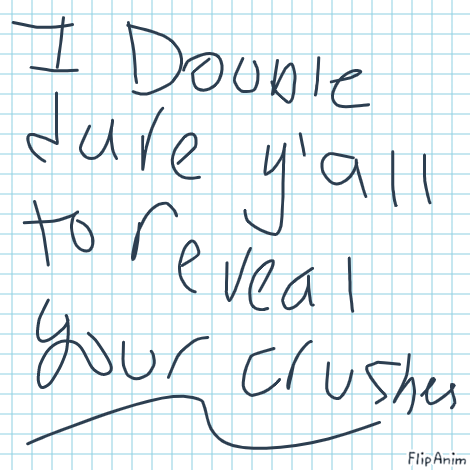 I Double
dure y'all
to reveal
your crushes
FlipAnim